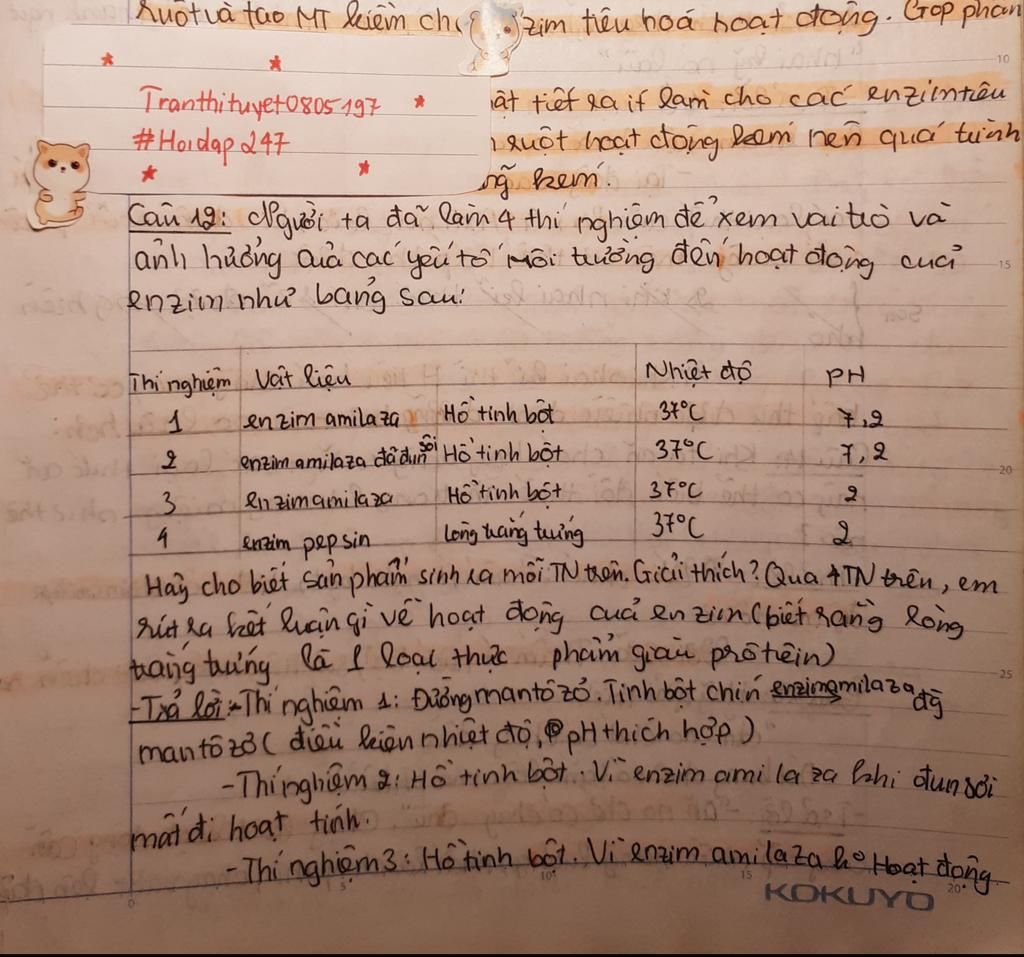 ruột và tạo MT kiềm ch zim tiêu hoá hoạt động. Góp phần
Tranthituyet0805197
#Hoidap247
ật tiết ra ít làm cho các enzim tiêu
ruột hoạt động kém nên quá trình
ng kém.
Câu 12: Người ta đã làm 4 thí nghiệm để xem vai trò và
ảnh hưởng của các yếu tố môi trường đến hoạt động của
enzim như bảng sau:
Thí nghiệm Vật liệu Nhiệt độ PH
1 enzim amilaza Hồ tinh bột 37°C 7,2
2 enzim amilaza đã đun sôi Hồ tinh bột 37°C 7,2
3 enzim amilaza Hồ tinh bột 37°C 2
4 enzim pepsin Lòng trắng trứng 37°C 2
Hãy cho biết sản phẩm sinh ra mỗi TN trên. Giải thích? Qua 4 TN trên, em
rút ra kết luận gì về hoạt động của enzim (biết rằng lòng
trắng trứng là 1 loại thực phẩm giàu prôtêin)
-Trả lời:-Thí nghiệm 1: Đường mantôzơ. Tinh bột chín enzimamilaza
mantôzơ ( điều kiện nhiệt độ, pH thích hợp )
-Thí nghiệm 2: Hồ tinh bột. Vì enzim amilaza khi đun sôi
mất đi hoạt tính.
-Thí nghiệm 3: Hồ tinh bột. Vì enzim amilaza ko Hoạt động
KOKUYO
10
15
20
25
0
5
10
15
20